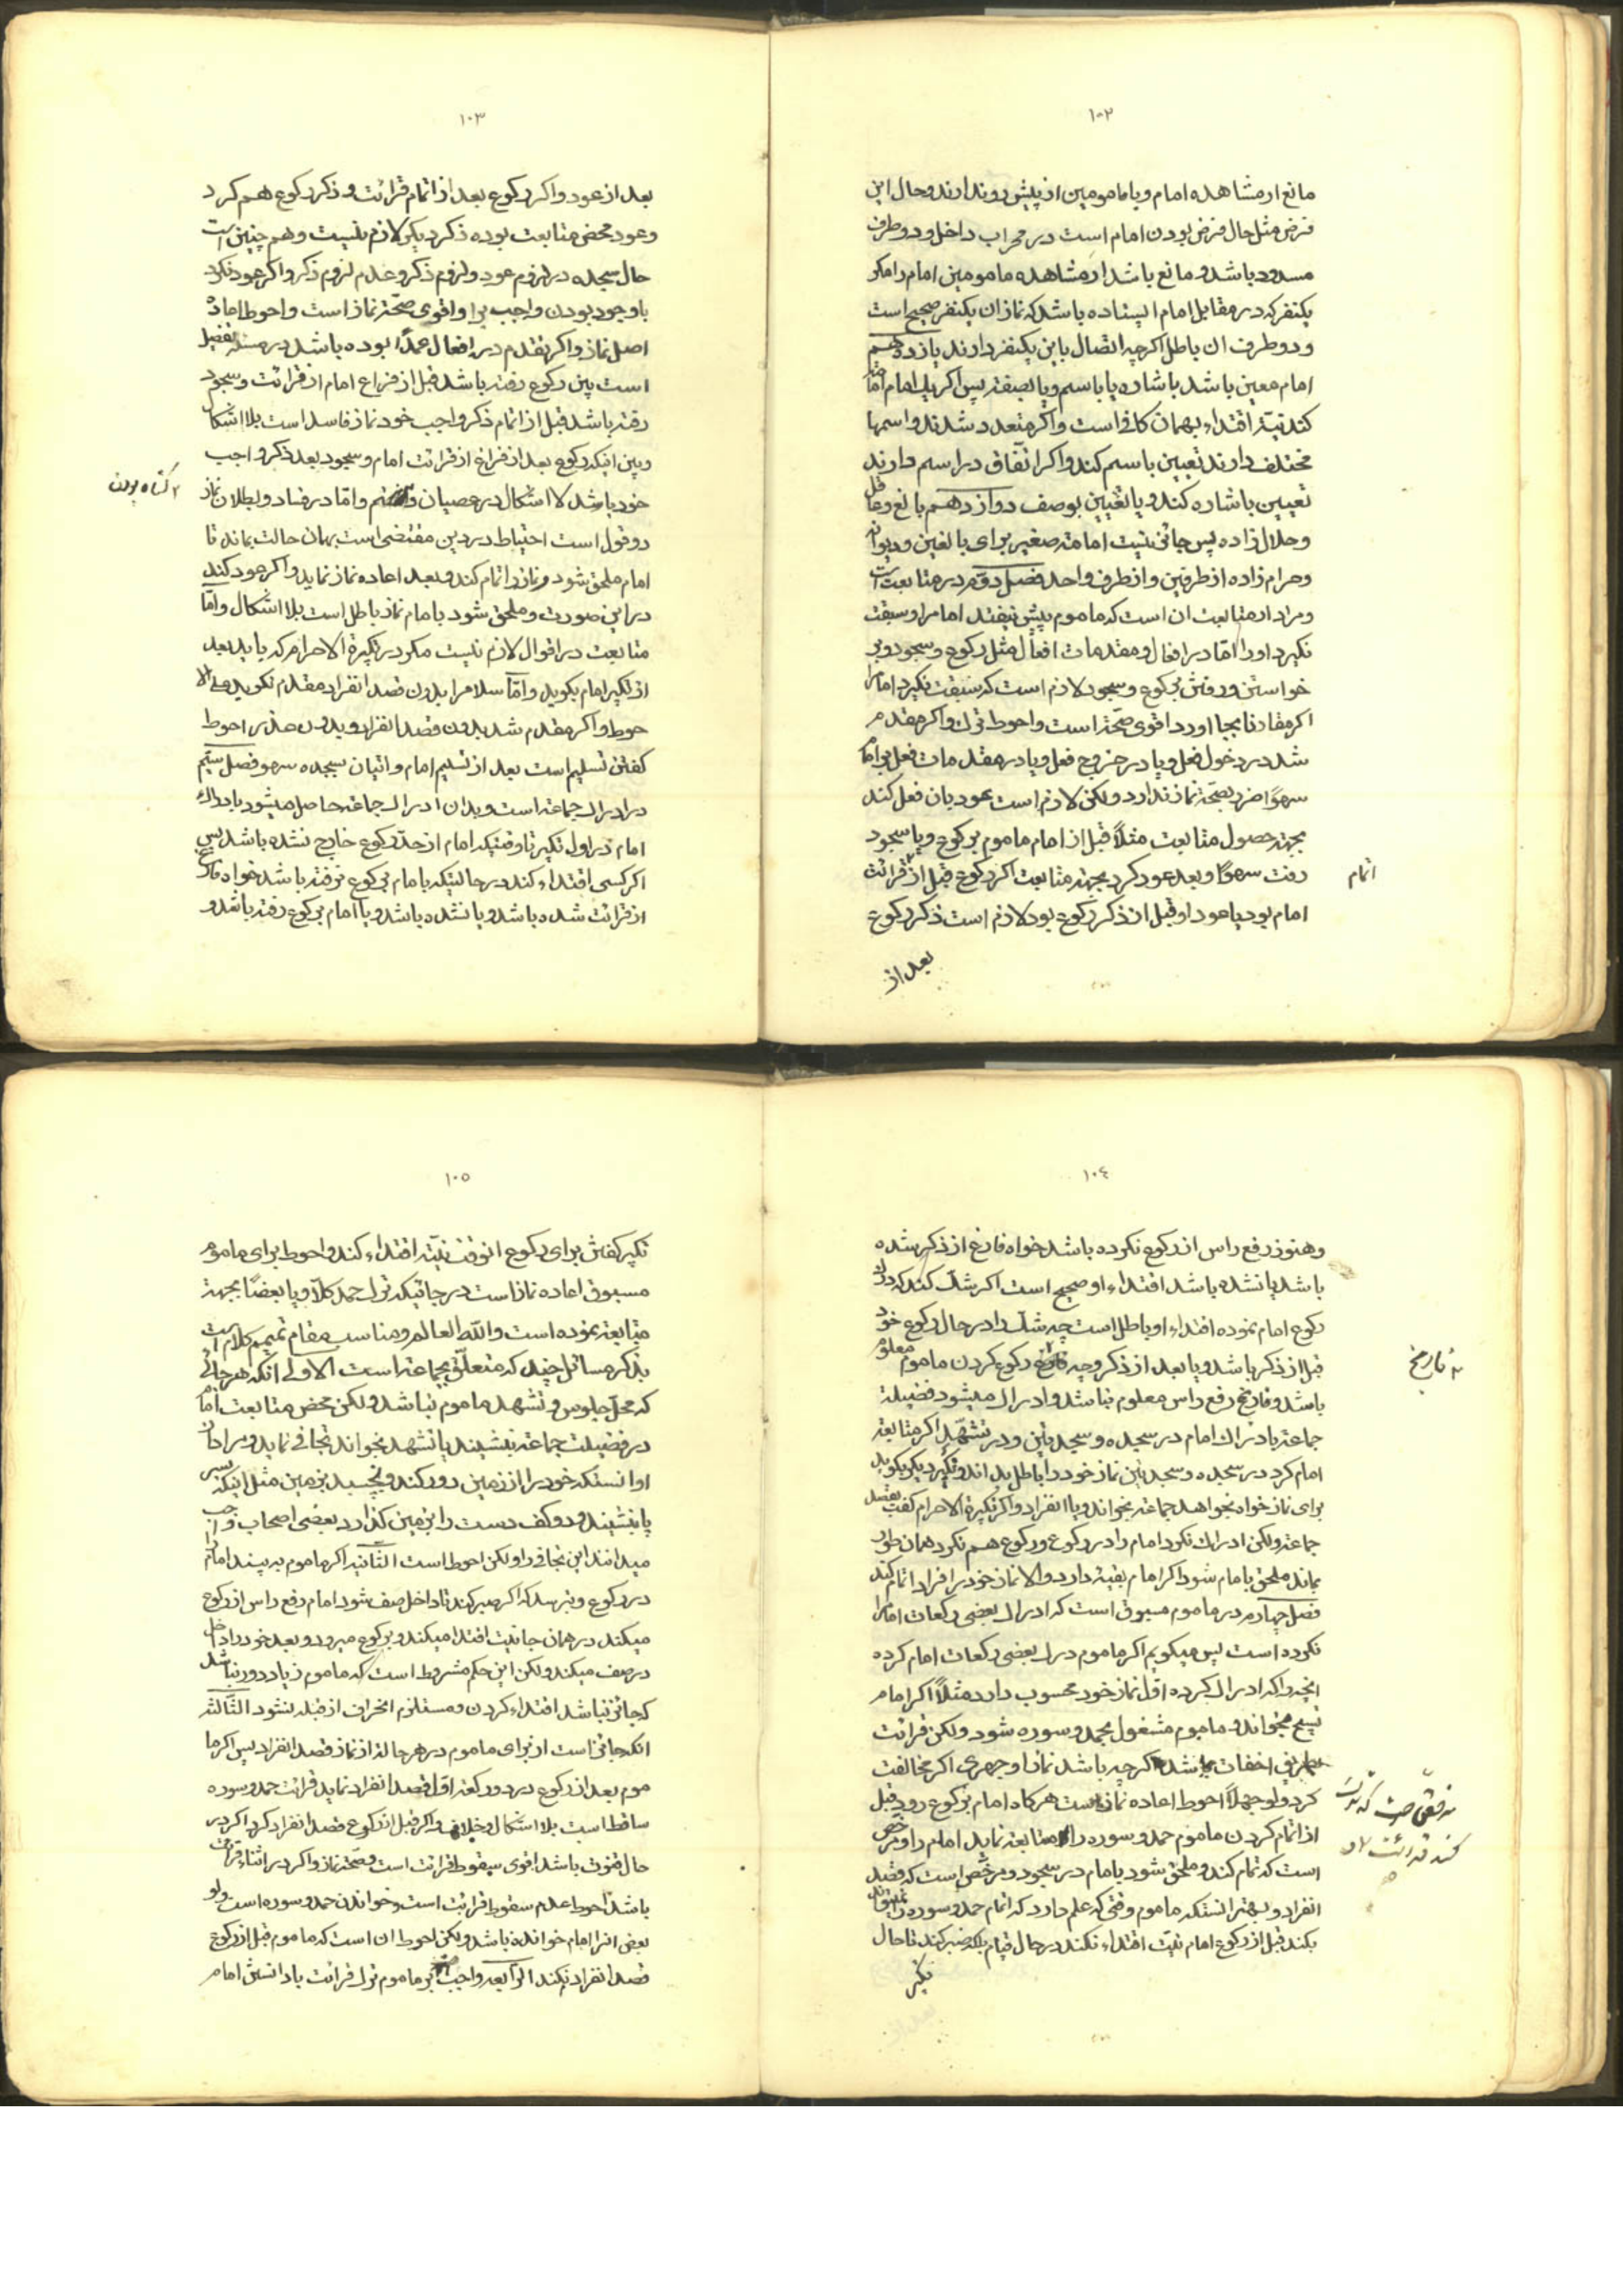 ۱۰۲
مانع از مشاهده امام و یا مامومین از پیش رو ندارند و حال این
فرض مثل حال فرض بودن امام است در محراب داخل و دو طرف
مسدود باشد و مانع باشد از مشاهده مامومین امام را مگر
یکنفر که در مقابل امام ایستاده باشد که نماز ان یکنفر صحیح است
و دو طرف ان باطل اگرچه اتصال باین یکنفر دارند یازدهم
امام معین باشد باشاره یا باسم و یا بصفة پس اگر یک امام
کند نیّة اقتداء بهمان کافی است و اگر متعدد شدند و اسمها
مختلف دارند تعیین باسم کند و اگر اتفاق در اسم دارند
تعیین باشاره کند و یا تعیین بوصف دوازدهم بالغ و عاقل
و حلال زاده پس جائز نیست امامة صغیر برای بالغین و دیوانه
و حرام زاده از طرفین و از طرف واحد فصل دوّم در متابعت است
و مراد از متابعت ان است که ماموم پیش نیفتد امام را و سبقت
نگیرد او را امّا در افعال و مقدمات افعال مثل رکوع و سجود و بر
خواستن و رفتن برکوع و سجود لازم است که سبقت نگیرد امام را
اگر مقارنا بجا اورد اقوی صحّة است و احوط ترک و اگر مقدم
شد در دخول فعل و یا در خروج فعل و یا در مقدمات فعل بر امام
سهوًا ضرر بصحّة نماز ندارد ولکن لازم است عود بان فعل کند
بجهة حصول متابعت مثلاً قبل از امام ماموم برکوع و یا سجود
رفت سهوًا و بعد عود کرد بجهة متابعت اگر رکوع قبل از قرائت
اتمام
امام بود یا عود او قبل از ذکر رکوع بود لازم است ذکر رکوع
بعد از
۱۰۳
بعد از عود و اگر رکوع بعد از اتمام قرائت و ذکر رکوع هم کرد
و عود محض متابعت بوده ذکر دیگر لازم نیست و هم چنین است
حال سجده در لزوم عود و لزوم ذکر و عدم لزوم ذکر و اگر عود نکرد
با وجود بودن واجب بر او اقوی صحّة نماز است و احوط اعادهٔ
اصل نماز و اگر تقدم در افعال عمدًا بوده باشد در مسئله تفصیل
است بین رکوع رفته باشد قبل از فراغ امام از قرائت و سجود
رفته باشد قبل از اتمام ذکر واجب خود نماز فاسد است بلا اشکال
و بین اینکه رکوع بعد از فراغ از قرائت امام و سجود بعد ذکر واجب
خود باشد لا اشکال در عصیان و امّا در فساد و بطلان نماز
گناه بودن
دو قول است احتیاط در دین مقتضی است بهمان حالت بماند تا
امام ملحق شود و نماز را تمام کند و بعد اعاده نماز نماید و اگر عود کند
در این صورت و ملحق شود با امام نماز باطل است بلا اشکال و امّا
متابعت در اقوال لازم نیست مگر در تکبیرة الاحرام که باید بعد
از تکبیر امام بگوید و امّا سلام را بدون قصد انفراد مقدم نگوید علی الا
حوط و اگر مقدم شد بدون قصد انفراد و بدون عذر احوط
گفتن تسلیم است بعد از تسلیم امام و اتیان سجده سهو فصل سیّم
در ادراک جماعة است و بدان ادراک جماعة حاصل میشود بادراک
امام در اول تکبیر تا وقتیکه امام از حدّ رکوع خارج نشده باشد پس
اگر کسی اقتداء کند در حالیتیکه یا امام برکوع نرفته باشد خواه فارغ
از قرائت شده باشد و یا نشده باشد و یا امام برکوع رفته باشد و
۱۰٤
و هنوز رفع راس از رکوع نکرده باشد خواه فارغ از ذکر شده
باشد یا نشده باشد اقتداء او صحیح است اگر شک کند که درک
رکوع امام نموده اقتداء او باطل است چه شک را در حال رکوع خود
قبل از ذکر باشد و یا بعد از ذکر و چه رکوع کردن ماموم معلوم
تاریخ
باشد و تاریخ رفع راس معلوم نباشد و ادراک میشود فضیلة
جماعة بادراک امام در سجده و سجدتین و در تشهّد اگر متابعة
امام کرد در سجده و سجدتین نماز خود را باطل بداند و تکبیر دیگر بگوید
برای نماز خواه بخواهد جماعة بخواند و یا انفراد و اگر تکبیرة الاحرام گفت بقصد
جماعة ولکن ادراک نکرد امام را در رکوع و رکوع هم نکرد همان طور
بماند ملحق با امام شود اگر امام بقیّة دارد و الا نماز خود را فراد اتمام کند
فصل چهارم در ماموم مسبوق است که ادراک بعضی رکعات امام را
نکرده است پس میگویم اگر ماموم درک بعضی رکعات امام کرده
انچه را که ادراک کرده اوّل نماز خود محسوب دارد مثلاً اگر امام
تسبیح میخواند و ماموم مشغول بحمد و سوره شود ولکن قرائت
بطریق اخفات باشد اگرچه باشد نماز او جهری اگر مخالفت
کرد ولو جهلًا احوط اعاده نماز است هرگاه امام برکوع رود قبل
از اتمام کردن ماموم حمد و سوره را متابعة نماید امام را و مرخص
است که تمام کند و ملحق شود بامام در سجود و مرخّص است که قصد
کند قرائت
انفراد و بهتر انستکه ماموم وقتی که علم دارد که اتمام حمد و سوره را نمیتواند
بکند قبل از رکوع امام نیّت اقتداء نکند در حال قیام بلکه صبر کند تا حال
تکبیر
۱۰٥
تکبیر گفتن برای رکوع انوقت نیّة اقتداء کند و احوط برای ماموم
مسبوق اعاده نماز است در جائیکه ترک حمد کلًا و یا بعضًا بجهة
متابعة نموده است و الله العالم و مناسب مقام تتمیم کلام است
بذکر مسائل چند که متعلّق بجماعة است الاولی انکه هر جائی
که محلّ جلوس و تشهد ماموم نباشد ولکن محض متابعت امام
در فضیلت جماعة بنشیند یا تشهد بخواند تجافی نماید و مراد از
او انستکه خود را از زمین دور کند و نچسبد بزمین مثل اینکه بسر
پا بنشیند و دو کف دست را بزمین گذارد بعضی اصحاب واجب
میدانند این تجافی را ولکن احوط است الثّانیه اگر ماموم به بیند امام را
در رکوع و بترسد که اگر صبر کند تا داخل صف شود امام رفع راس از رکوع
میکند در همان جا نیت اقتدا میکند و برکوع میرود و بعد خود را داخل
در صف میکند ولکن این حکم مشروط است که ماموم زیاد دور نباشد
که جائز نباشد اقتداء کردن و مستلزم انحراف از قبله نشود الثّالثه
انکه جائز است از برای ماموم در هر حالة از نماز قصد انفراد پس اگر ما
موم بعد از رکوع در دو رکعة اوّل قصد انفراد نماید قرائت حمد و سوره
ساقط است بلا اشکال و خلاف و اگر قبل از رکوع قصد انفراد کرد اگر در
حال قنوت باشد اقوی سقوط قرائت است و صحّة نماز و اگر در اثناء قرائت
باشد احوط عدم سقوط قرائت است و خواندن حمد و سوره است ولو
بعض انرا امام خوانده باشد ولکن احوط ان است که ماموم قبل از رکوع
قصد انفراد نکند الرّابعه واجب بر ماموم ترک قرائت با دانستن امام